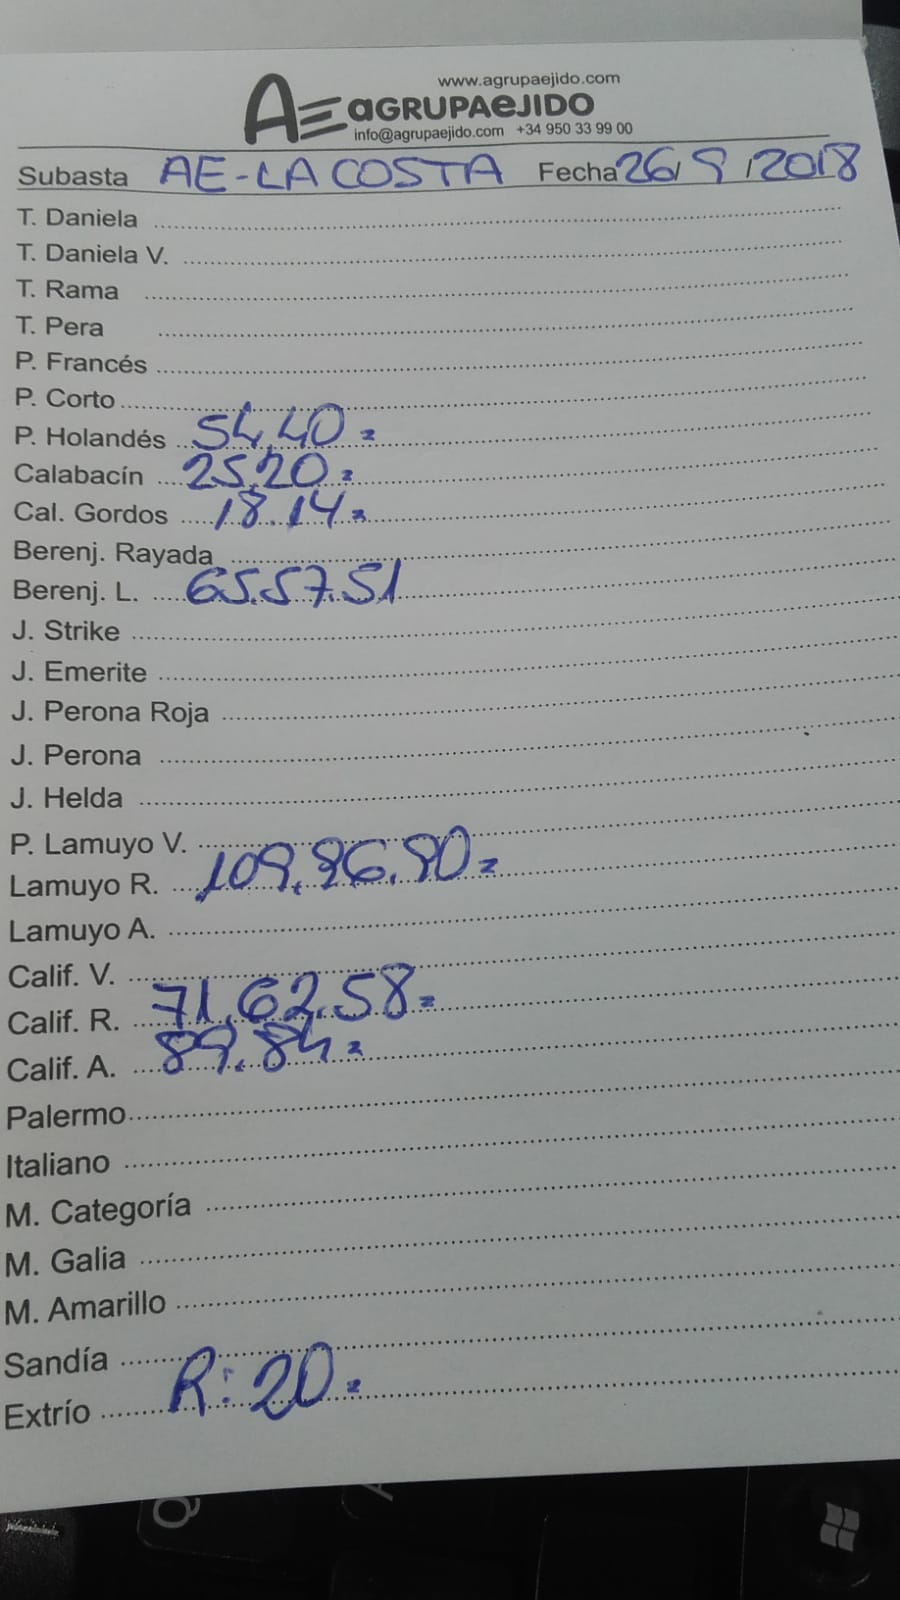 www.agrupaejido.com
AE AGRUPAEJIDO
info@agrupaejido.com +34 950 33 99 00
Subasta AE-LA COSTA Fecha 26/9/2018
T. Daniela
T. Daniela V.
T. Rama
T. Pera
P. Francés
P. Corto
P. Holandés 54,40=
Calabacín 25,20=
Cal. Gordos 18.14=
Berenj. Rayada
Berenj. L. 65.57.51
J. Strike
J. Emerite
J. Perona Roja
J. Perona
J. Helda
P. Lamuyo V.
Lamuyo R. 109.96.90=
Lamuyo A.
Calif. V.
Calif. R. 71.62.58=
Calif. A. 89.84=
Palermo
Italiano
M. Categoría
M. Galia
M. Amarillo
Sandía
Extrío R: 20=
Q